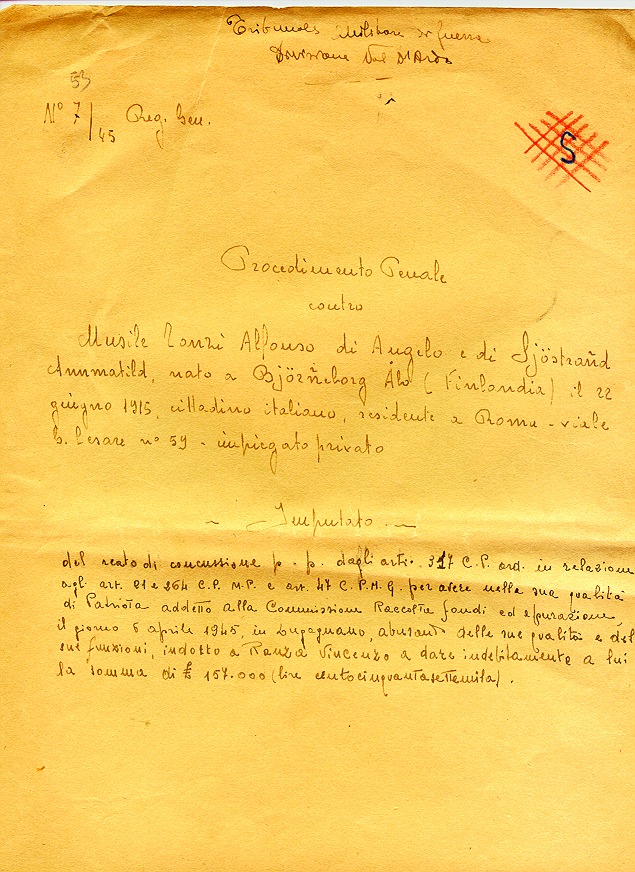 Tribunale Militare di guerra
Divisione Val D'Arda
53
N° 7/45 Reg. Gen.
S
Procedimento Penale
contro
Musile Tanzi Alfonso di Angelo e di Sjöstrañd
Annmatild, nato a Björñeborg Åbo (Finlandia) il 22
giugno 1915, cittadino italiano, residente a Roma - viale
G. Cesare n° 59 - impiegato privato
~ Imputato ~
del reato di concussione p. p. dagli arti. 317 C.P. ord. in relazione
agl. art. 21 e 264 C.P.M.P. e art. 47 C.P.M.G. per avere nella sua qualità
di Patriota addetto alla Commissione Raccolta fondi ed epurazione,
il giorno 6 aprile 1945, in Lugagnano, abusando delle sue qualità e del
sue funzioni, indotto a Ranza Vincenzo a dare indebitamente a lui
la somma di £ 157.000 (lire centocinquantasettemila).